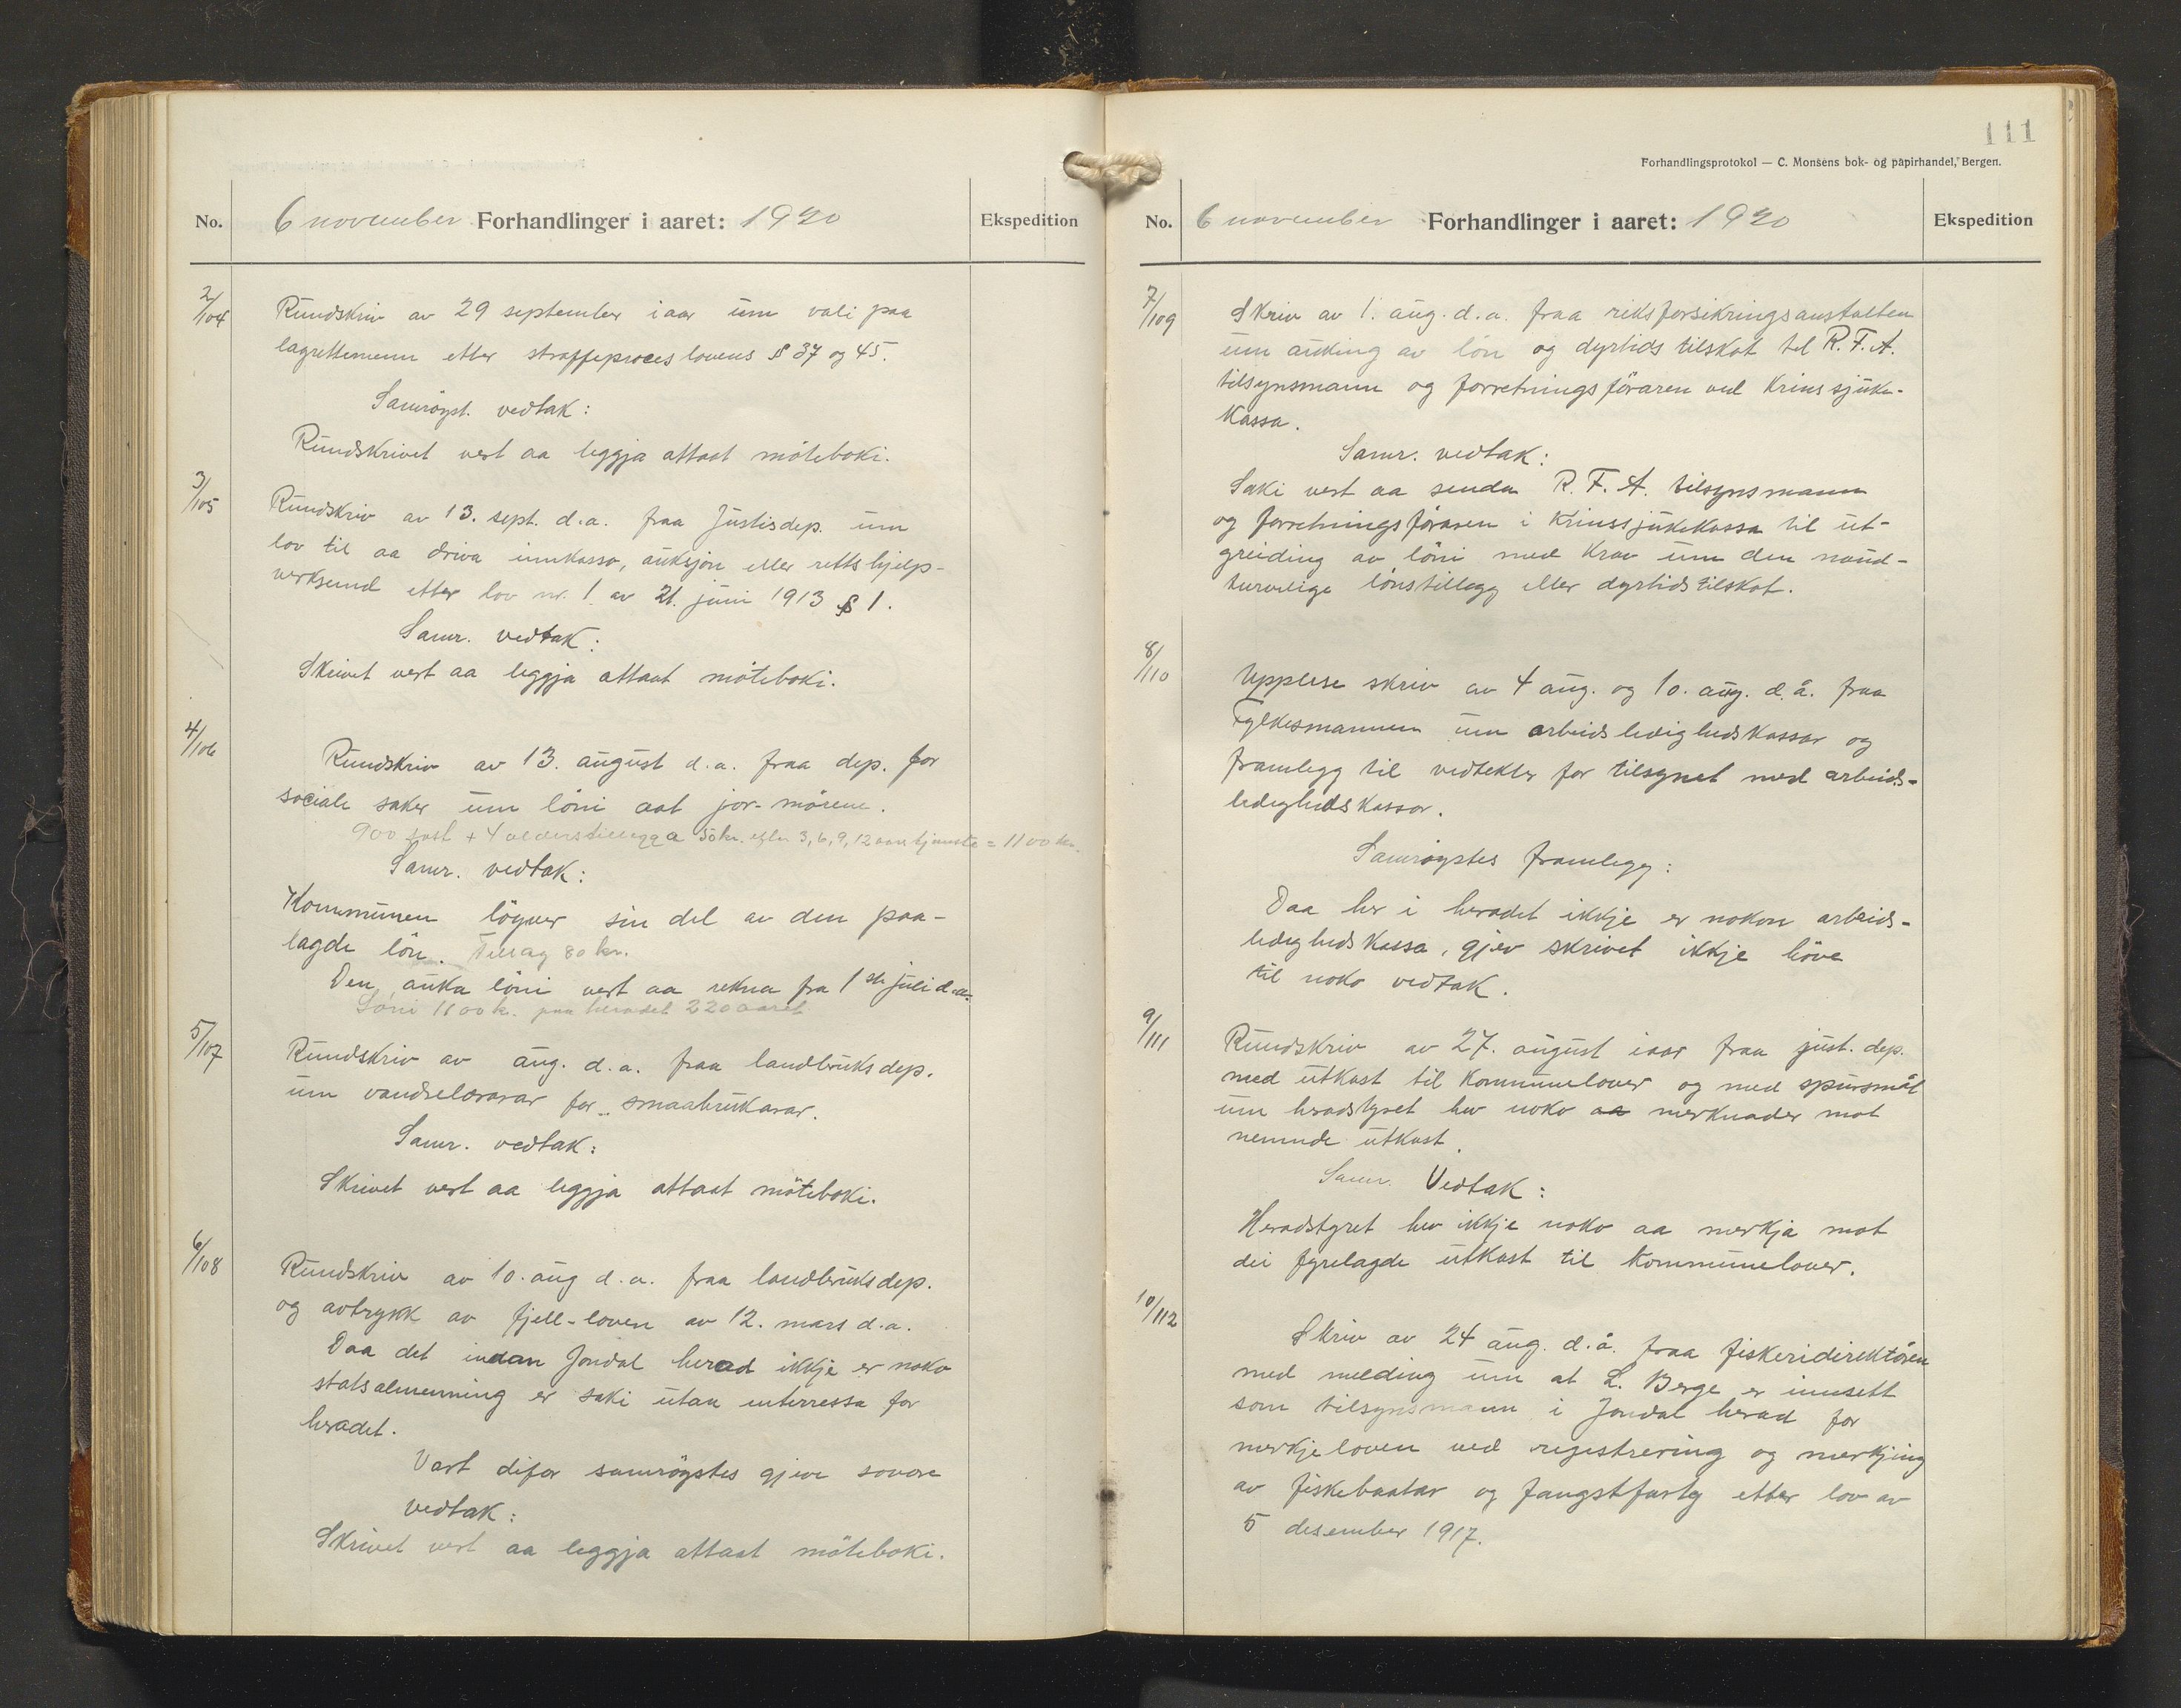 No.
6 november Forhandlinger i aaret: 1920
Ekspedition
2/104
Rundskriv av 29 september iaar um vali paa
lagrettemenn etter straffeproceslovens § 37 og 45.
Samrøyst. vedtak:
Rundskrivet vert aa leggja attaat møteboki.
3/105
Rundskriv av 13. sept. d.a. fraa Justisdep. um
lov til aa driva innkasso, auksjon eller rettshjelp-
verksemd etter lov nr. 1 av 21. juni 1913 § 1.
Samr. vedtak:
Skrivet vert aa leggja attaat møteboki.
4/106
Rundskriv av 13. august d.a. fraa dep. for
sociale saker um løni aat jor-mørene.
900 fast + 4 alderstillegg a 50 kr. efter 3, 6, 9, 12 aars tjeneste = 1100 kr.
Samr. vedtak:
Kommunen løyver sin del av den paa-
lagde løn. Tillag 80 kr.
Den auka løni vert aa rekna fra 1ste juli d.a.
Løni 1100 k. paa heradet 220 aaret
5/107
Rundskriv av aug. d.a. fraa landbruksdep.
um vandrelærarar for smaabrukarar.
Samr. vedtak:
Skrivet vert aa leggja attaat møteboki.
6/108
Rundskriv av 10. aug d.a. fraa landbruksdep.
og avtrykk av fjell-loven av 12. mars d.a.
Daa det indan Jondal herad ikkje er noko
statsalmenning er saki utan interressa for
heradet.
Vart difor samrøystes gjeve sovore
vedtak:
Skrivet vert aa leggja attaat møteboki.
111
Forhandlingsprotokol — C. Monsens bok- og papirhandel, Bergen.
No.
6 november Forhandlinger i aaret: 1920
Ekspedition
7/109
Skriv av 1. aug. d.a. fraa riksforsikringsanstalten
um auking av løn og dyrtidstilskot til R.F.A.
tilsynsmann og forretningsføraren ved Krinssjuke-
kassa.
Samr. vedtak:
Saki vert aa senda R.F.A. tilsynsmann
og forretningsføraren i Krinssjukekassa til ut-
greiding av løni med krav um den naud-
turvelige lønstillegg eller dyrtidstilskot.
8/110
Upplese skriv av 4 aug. og 10. aug. d.å. fraa
Fylkesmannen um arbeidsledighedskassar og
framlegg til vedtekter for tilsynet med arbeids-
ledighedskassor.
Samrøystes framlegg:
Daa her i heradet ikkje er nokon arbeids-
ledighedskassa, gjev skrivet ikkje høve
til noko vedtak.
9/111
Rundskriv av 27. august iaar fraa just. dep.
med utkast til kommunelover og med spursmål
um heradstyret hev noko aa merknader mot
nemnde utkast.
Samr. Vedtak:
Heradstyret hev ikkje noko aa merkja mot
dei fyrelagde utkast til kommunelover.
10/112
Skriv av 24 aug. d.å. fraa fiskeridirektøren
med melding um at L. Berge er innsett
som tilsynsmann i Jondal herad for
merkjeloven ved registrering og merkjing
av fiskebaatar og fangstfarty etter lov av
5 desember 1917.